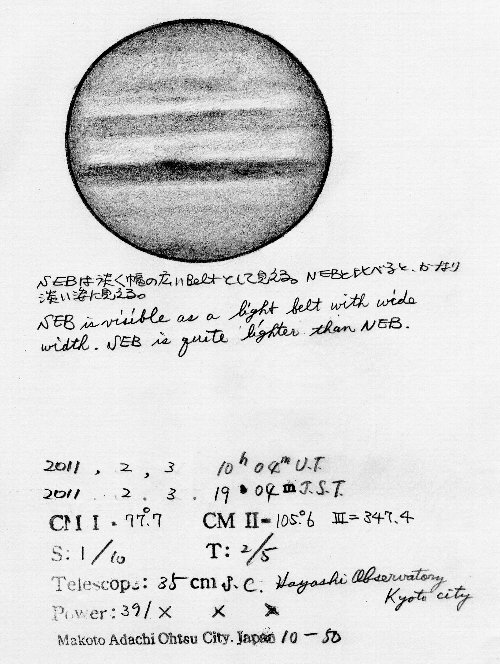 SEBは淡く幅の広いBeltとして見える。NEBと比べると、かなり
淡い姿に見える。
SEB is visible as a light belt with wide
width. SEB is quite lighter than NEB.
2011 . 2 . 3 10h 04m U.T.
2011 . 2 . 3 . 19h 04m J.S.T.
CM I = 77.°7 CM II = 105.°6 III = 347.4
S: 1/10 T: 2/5
Telescope: 35 cm S.C. Hayashi Observatory
Kyoto city
Power: 391× × ×
Makoto Adachi Ohtsu City. Japan 10-50